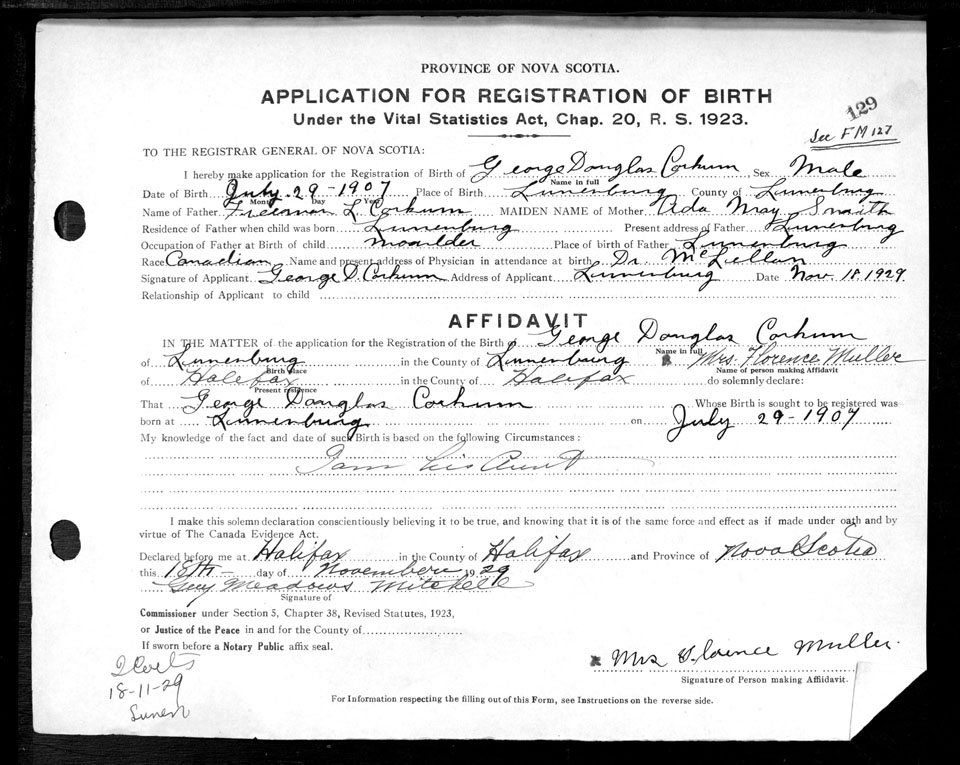 PROVINCE OF NOVA SCOTIA.
APPLICATION FOR REGISTRATION OF BIRTH
129
Under the Vital Statistics Act, Chap. 20, R. S. 1923.
See FM 127
TO THE REGISTRAR GENERAL OF NOVA SCOTIA:
I hereby make application for the Registration of Birth of George Douglas Corkum Sex Male
Name in full
Date of Birth July 29 - 1907 Place of Birth Lunenburg County of Lunenburg
Month Day Year
Name of Father Freeman L. Corkum MAIDEN NAME of Mother Ada May Smith
Residence of Father when child was born Lunenburg Present address of Father Lunenburg
Occupation of Father at Birth of child moulder Place of birth of Father Lunenburg
Race Canadian Name and present address of Physician in attendance at birth Dr. McLellan
Signature of Applicant George D. Corkum Address of Applicant Lunenburg Date Nov. 18. 1929.
Relationship of Applicant to child
AFFIDAVIT
IN THE MATTER of the application for the Registration of the Birth of George Douglas Corkum
Name in full
of Lunenburg in the County of Lunenburg Mrs. Florence Muller
Birth place Name of person making Affidavit
of Halifax in the County of Halifax do solemnly declare:
Present residence
That George Douglas Corkum Whose Birth is sought to be registered was
born at Lunenburg on July 29 - 1907
My knowledge of the fact and date of such Birth is based on the following Circumstances:
I am his Aunt
I make this solemn declaration conscientiously believing it to be true, and knowing that it is of the same force and effect as if made under oath and by
virtue of The Canada Evidence Act.
Declared before me at Halifax in the County of Halifax and Province of Nova Scotia
this 18th day of November 1929
Guy Meadows Mitchell
Signature of
Commissioner under Section 5, Chapter 38, Revised Statutes, 1923,
or Justice of the Peace in and for the County of
If sworn before a Notary Public affix seal.
Mrs Florence Muller.
Signature of Person making Affidavit.
18-11-29
For Information respecting the filling out of this Form, see Instructions on the reverse side.